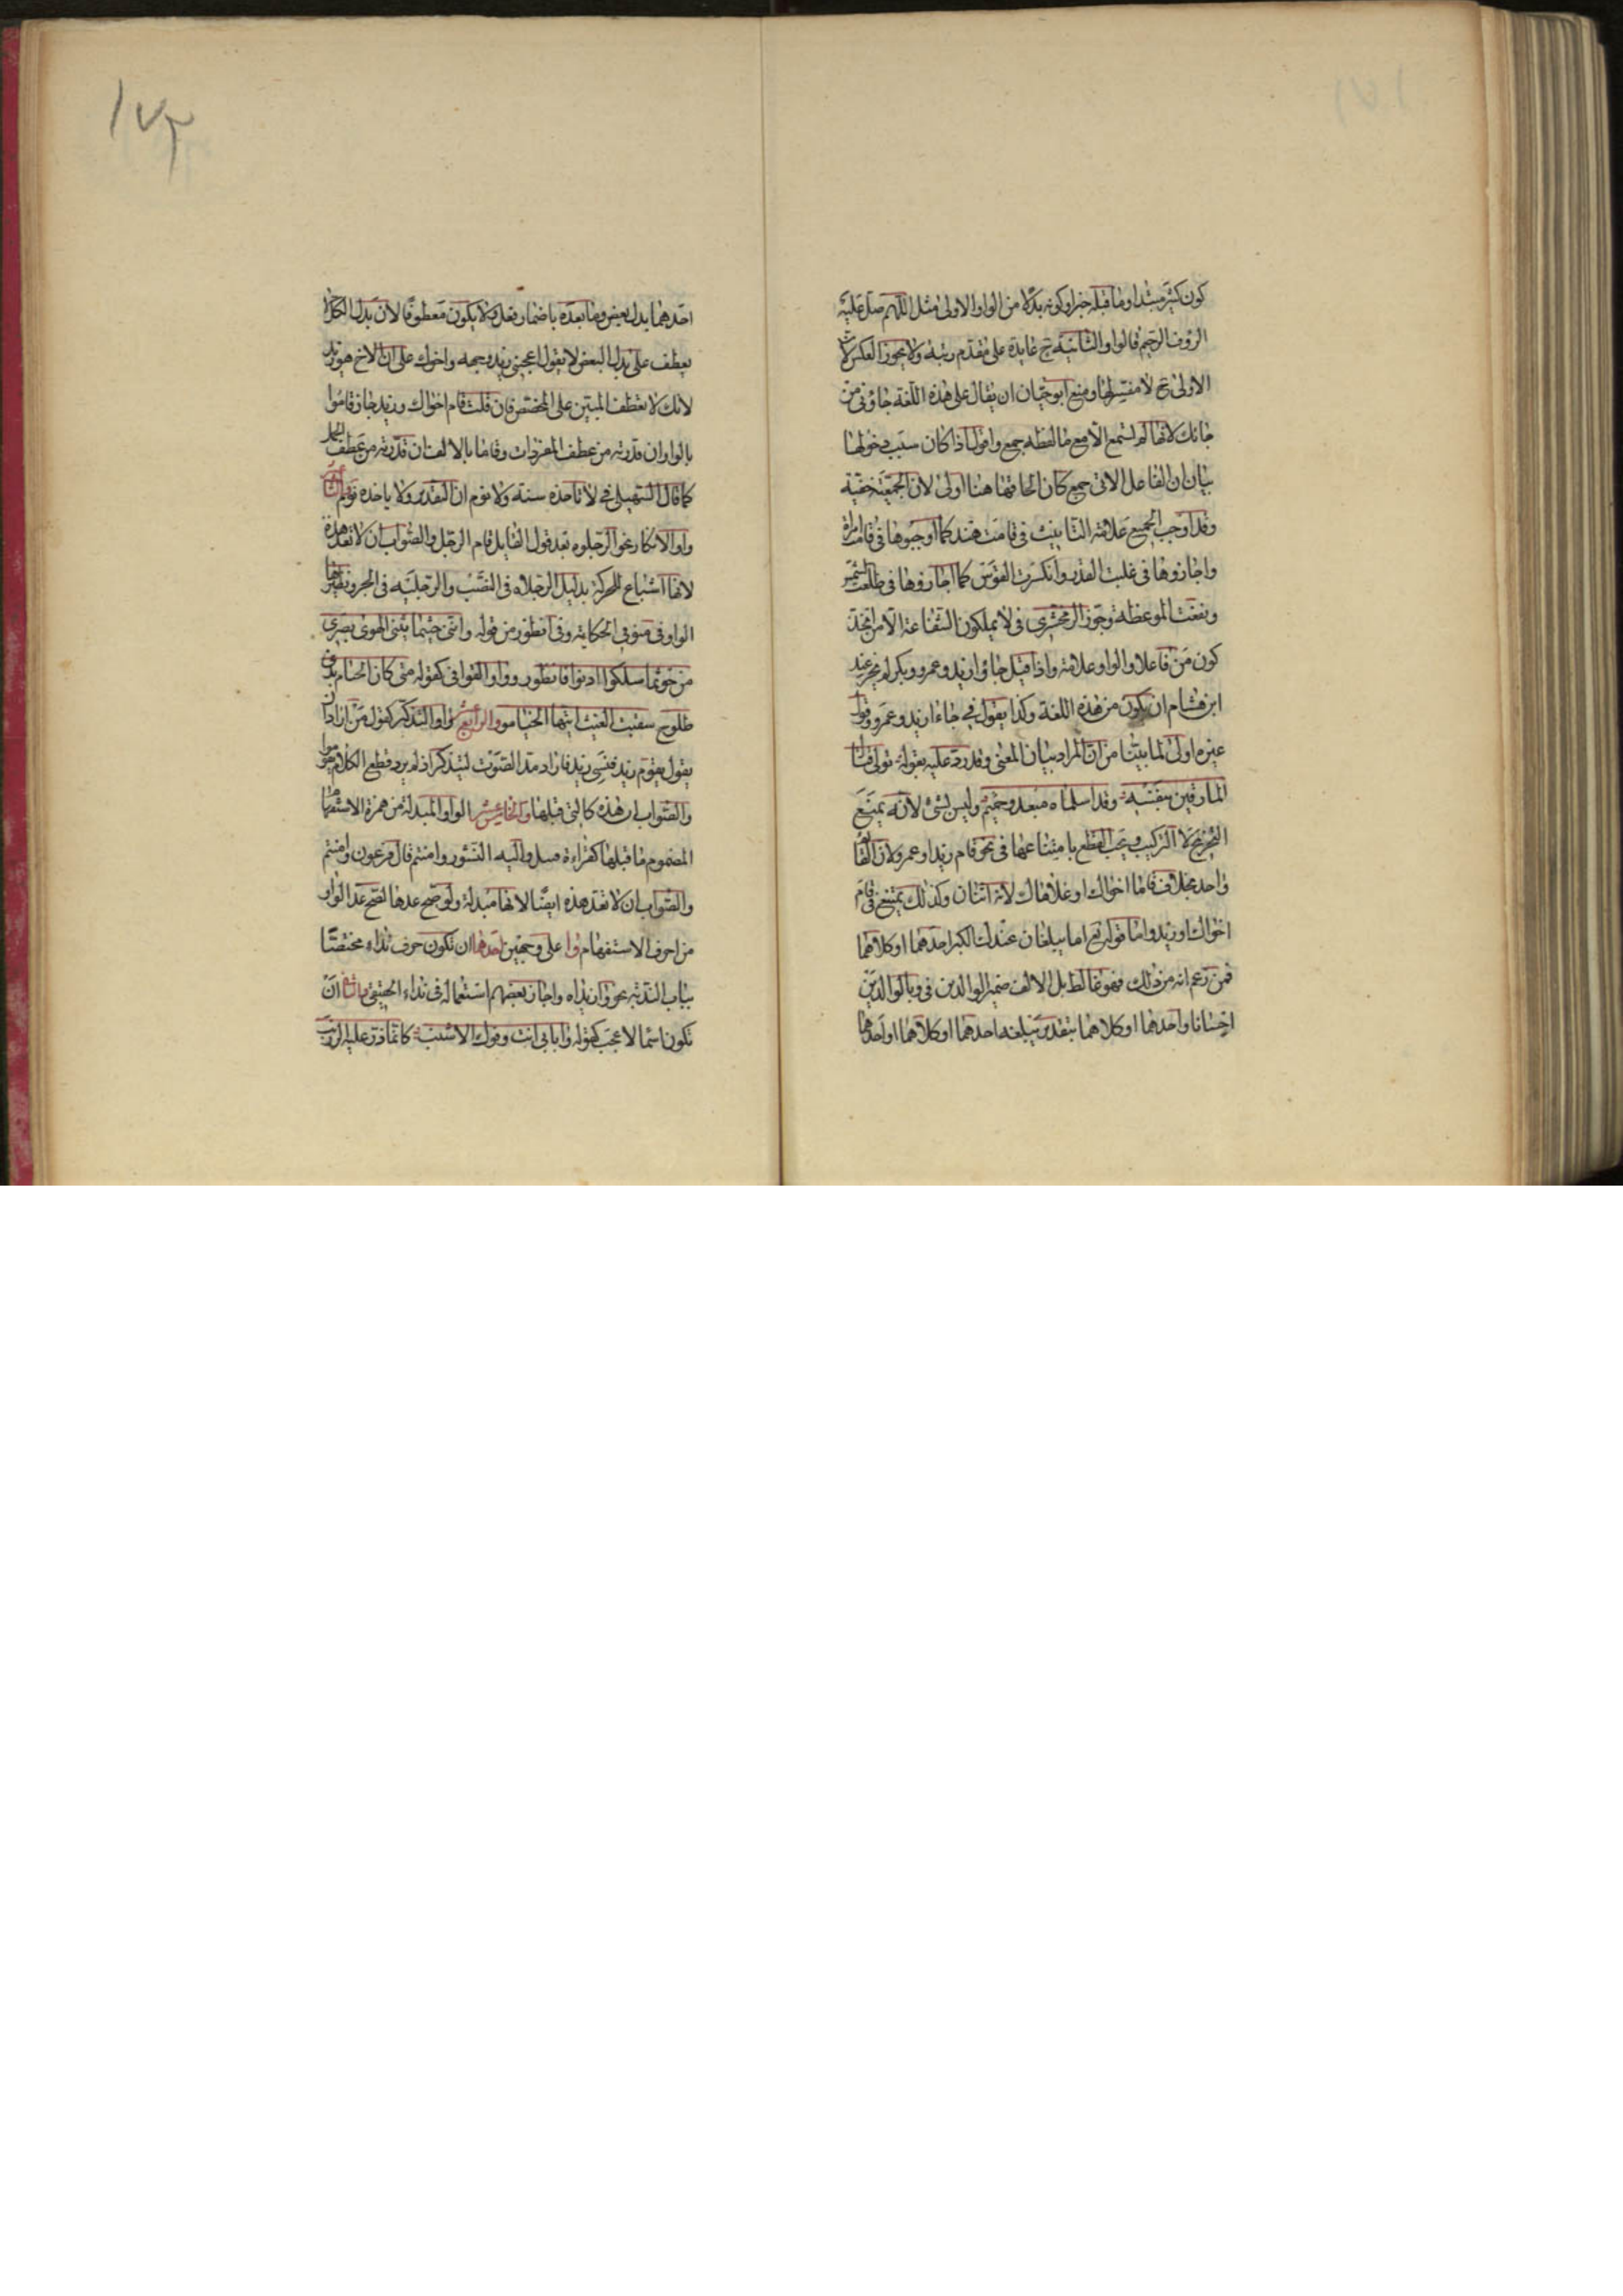 كون كثير مبتدا وما قبله خبرا وكونه بدلا من الواو الاولى مثل اللهم صل عليه
الروف الرحيم فالواو الثانية ح عايدة على مقدم رتبة ولا يجوز العكس لان
الاولى ح لا مفسر لها ومنع ابو حيان ان يقال على هذه اللغة جاوني من
جائك لانها لم تسمع الا مع ما لفظه جمع واقول اذا كان سبب دخولها
بيان ان الفاعل الاتى جمع كان لحاقها هنا اولى لان الجمعية خفية
وقد اوجب الجميع علامة التانيث في قامت هند كما اوجبوها في قامت امراة
واجازوها في غلبت القدر وانكسرت القوس كما اجازوها في طلعت الشمس
ونفعت الموعظة وجوز الزمخشري في لا يملكون الشفاعة الا من اتخذ
كون من فاعلا والواو علامة واذا قيل جاوا زيد وعمرو وبكر لم يجز عند
ابن هشام ان يكون من هذه اللغة وكذا يقول في جاءا زيد وعمرو وقول
غيره اولى لما بينا من ان المراد بيان المعنى وقد رد عليه بقوله تولى قتال
المارقين بنفسه وقد اسلماه مبعد وحميم وليس بشئ لانه يمنع
التخريج لا التركيب ويجب القطع بامتناعها في نحو قام زيد او عمرو لان القائم
واحد بخلاف قاما اخواك او غلاماك لانه اثنان وكذلك يمتنع في قام
اخواك او زيد واما قوله تع اما يبلغان عندك الكبر احدهما او كلاهما
فمن زعم انه من ذلك فهو غالط بل الالف ضمير الوالدين في وبالوالدين
احسانا واحدهما او كلاهما بتقدير يبلغه احدهما او كلاهما او احدهما
١٧٢
احدهما بدل بعض وما بعده باضمار فعل ولا يكون معطوفا لان بدل الكل لا
يعطف على بدل البعض لا يقول اعجبني زيد وجهه واخوك على ان الاخ هو زيد
لانك لا تعطف المبين على المخصص فان قلت قام اخواك وزيد جاز قاموا
بالواو ان قدرته من عطف المفردات وقاما بالالف ان قدرته من عطف الجمل
كما قال السهيلي في لا تاخذه سنة ولا نوم ان التقدير ولا ياخذه نوم
واو الانكار نحو الرجلوه بعد قول القايل قام الرجل والصواب ان لا تعد هذه
لانها اشباع للحركة بدليل الرجلاه في النصب والرجليه في الجر ونظيرها
الواو في منو في الحكاية وفي انظور من قوله وانني حيثما يثني الهوى بصري
من حوثما سلكوا ادنوا فانظور وواو القوافي كقوله متى كان الخيام بذي
طلوح سقيت الغيث ايتها الخيامو والرابع عشر واو التذكير كقول من اراد ان
يقول يقوم زيد فنسي زيد فاراد مد الصوت ليتذكر اذ لم يرد قطع الكلام يقوموا
والصواب ان هذه كالتي قبلها والخامس عشر الواو المبدلة من همزة الاستفهام
المضموم ما قبلها كقراءة قنبل واليه النشور وامنتم قال فرعون وامنتم
والصواب ان لا تعد هذه ايضا لانها مبدلة ولو صح عدها لصح عد الواو
من احرف الاستفهام وا على وجهين احدهما ان تكون حرف نداء مختصا
بباب الندبة نحو وا زيداه واجاز بعضهم استعماله في نداء الحقيقي والثاني ان
تكون اسما لاعجب كقوله وابابي انت وفوك الاشنب كانما ذر عليه الزرنب